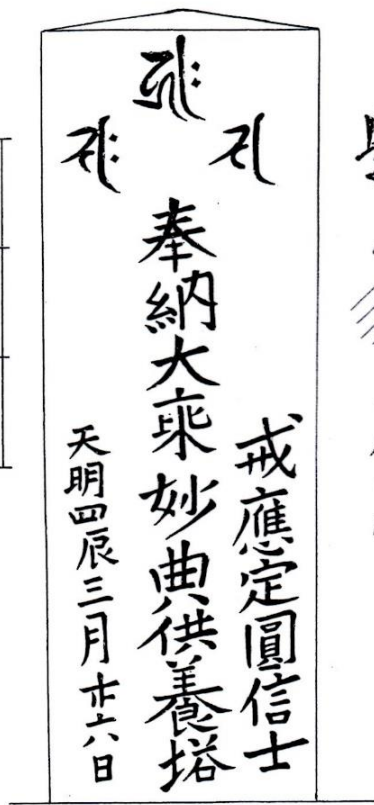 戒應定圓信士
奉納大乘妙典供養塔
天明四辰三月廿六日